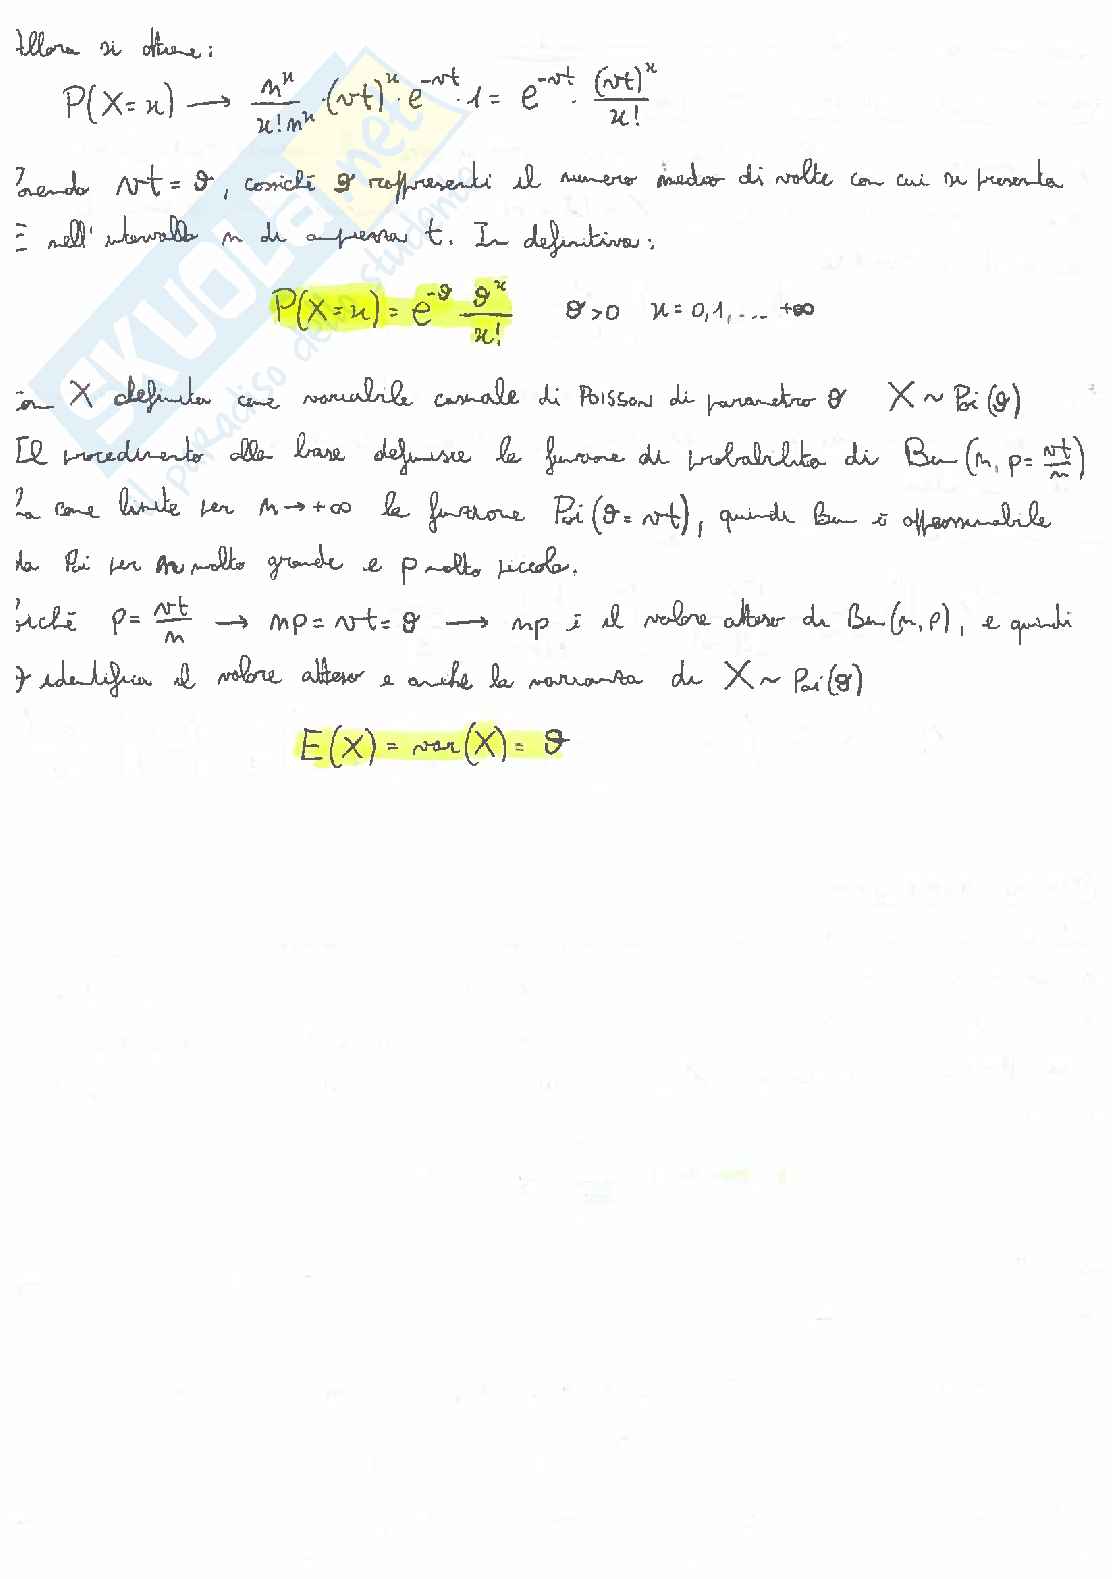 Allora si ottiene:
P(X=x) → n^x / x! n^x · (vt)^x · e^-vt · 1 = e^-vt · (vt)^x / x!
Ponendo vt = θ, cosicché θ rappresenti il numero medio di volte con cui si presenta
E nell'intervallo n di ampiezza t. In definitiva:
P(X=x) = e^-θ θ^x / x!   θ>0   x = 0,1, ... +∞
con X definita come variabile casuale di POISSON di parametro θ   X ~ Poi(θ)
Il procedimento alla base definisce la funzione di probabilità di Bin(n, p = vt/n)
ha come limite per n → +∞ la funzione Poi(θ = vt), quindi Bin è approssimabile
da Poi per n molto grande e p molto piccolo.
Poiché p = vt/n → np = vt = θ → np è il valore atteso di Bin(n, p), e quindi
θ identifica il valore atteso e anche la varianza di X ~ Poi(θ)
E(X) = var(X) = θ
SKUOLA.net
il paradiso dello studente